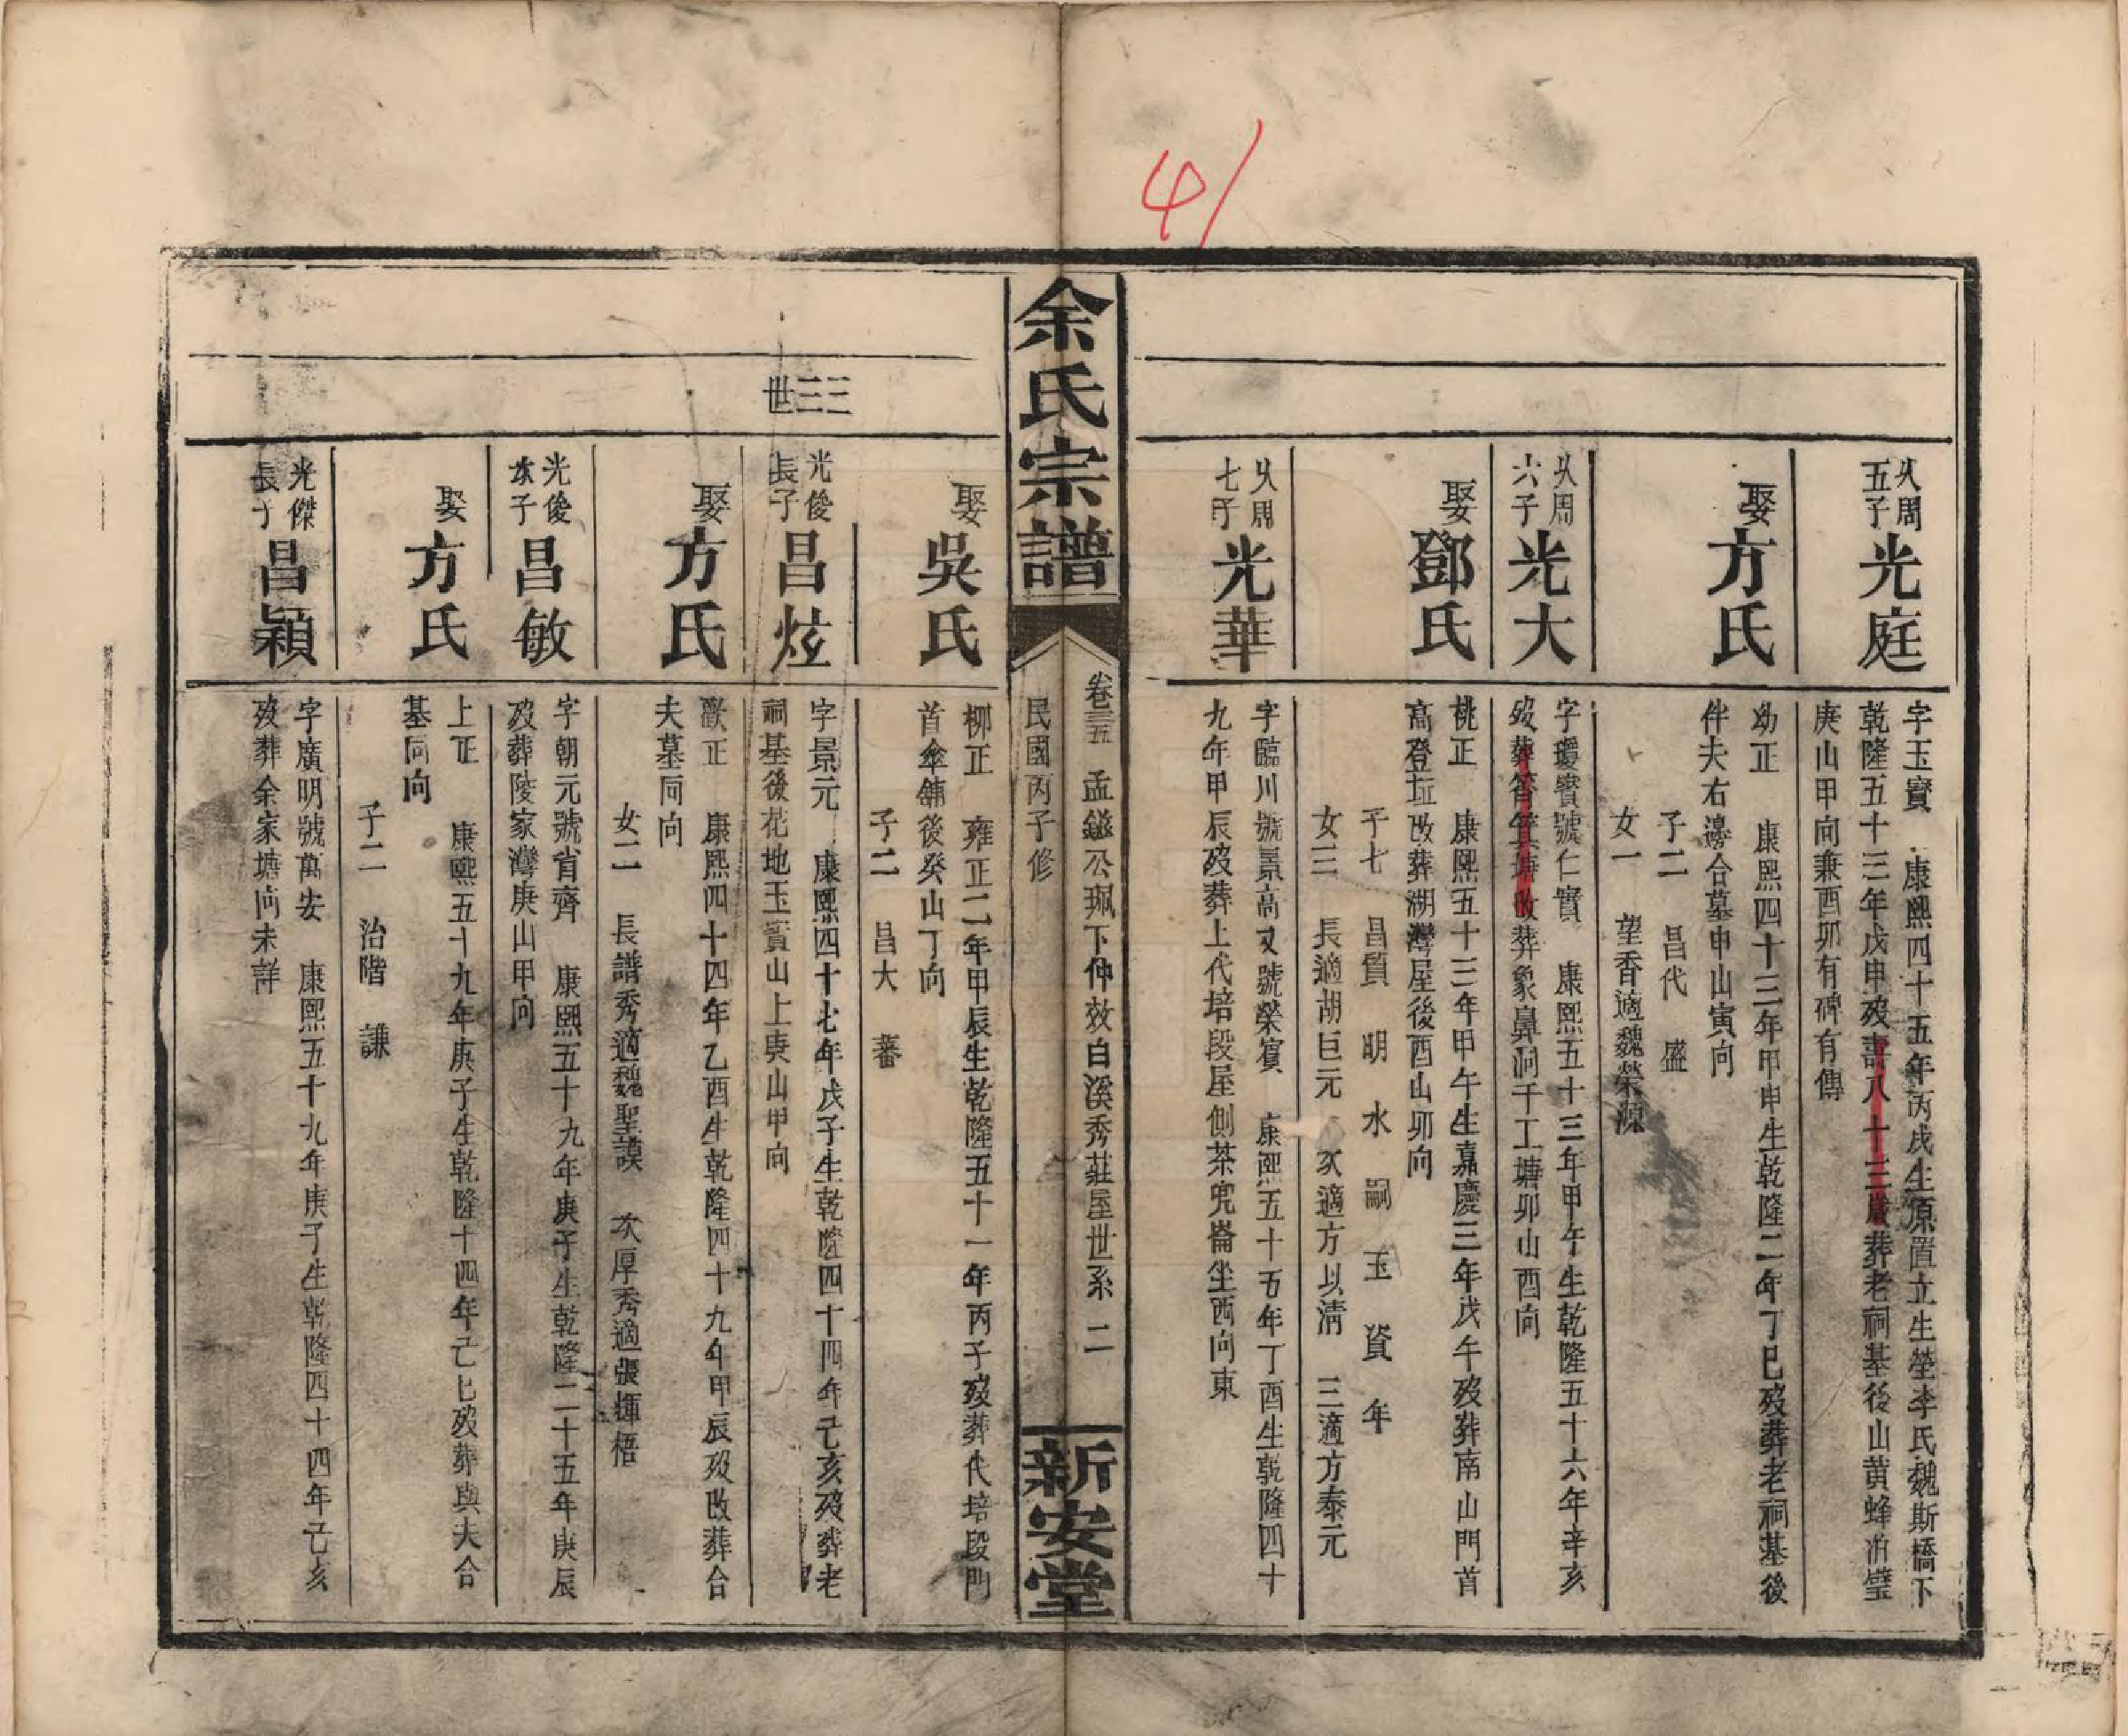 41
乆周五子光庭
字玉賓 康熙四十五年丙戌生原置立生塋李氏魏斯橋下
乾隆五十三年戊申歿壽八十三歲葬老祠基後山黄蜂
庚山甲向兼酉卯有碑有傳
娶方氏
幼正 康熙四十三年甲申生乾隆二年丁巳歿葬老祠基後
伴夫右邊合墓申山寅向
子二 昌代 盛
女一 望香適魏榮源
乆周六子光大
字瓊賓號仁實 康熙五十三年甲午生乾隆五十六年辛亥
歿葬筲箕塘改葬象鼻洞千工塘卯山酉向
娶鄧氏
桃正 康熙五十三年甲午生嘉慶三年戊午歿葬南山門首
高登坵改葬湖灣屋後酉山卯向
子七 昌質 明 水 嗣 玉 資 年
女三 長適胡巨元 次適方以清 三適方泰元
乆周七子光華
字臨川號景高又號榮賓 康熙五十五年丁酉生乾隆四十
九年甲辰歿葬上代培段屋側茶兜崙坐西向東
余氏宗譜
卷三五 孟鎡公珮下仲效白溪秀莊屋世系 二
民國丙子修
新安堂
娶吳氏
柳正 雍正二年甲辰生乾隆五十一年丙子歿葬代培段門
首傘舖後癸山丁向
子二 昌大 蕃
三三世
光俊長子昌炫
字景元 康熙四十七年戊子生乾隆四十四年己亥歿葬老
祠基後花地玉賓山上庚山甲向
娶方氏
歡正 康熙四十四年乙酉生乾隆四十九年甲辰歿改葬合
夫墓同向
女二 長譜秀適魏聖謨 次厚秀適張揮梧
光俊次子昌敏
字朝元號省齊 康熙五十九年庚子生乾隆二十五年庚辰
歿葬陵家灣庚山甲向
娶方氏
上正 康熙五十九年庚子生乾隆十四年己巳歿葬與夫合
基同向
子二 治階 謙
光傑長子昌穎
字廣明號萬安 康熙五十九年庚子生乾隆四十四年己亥
歿葬余家塘向未詳